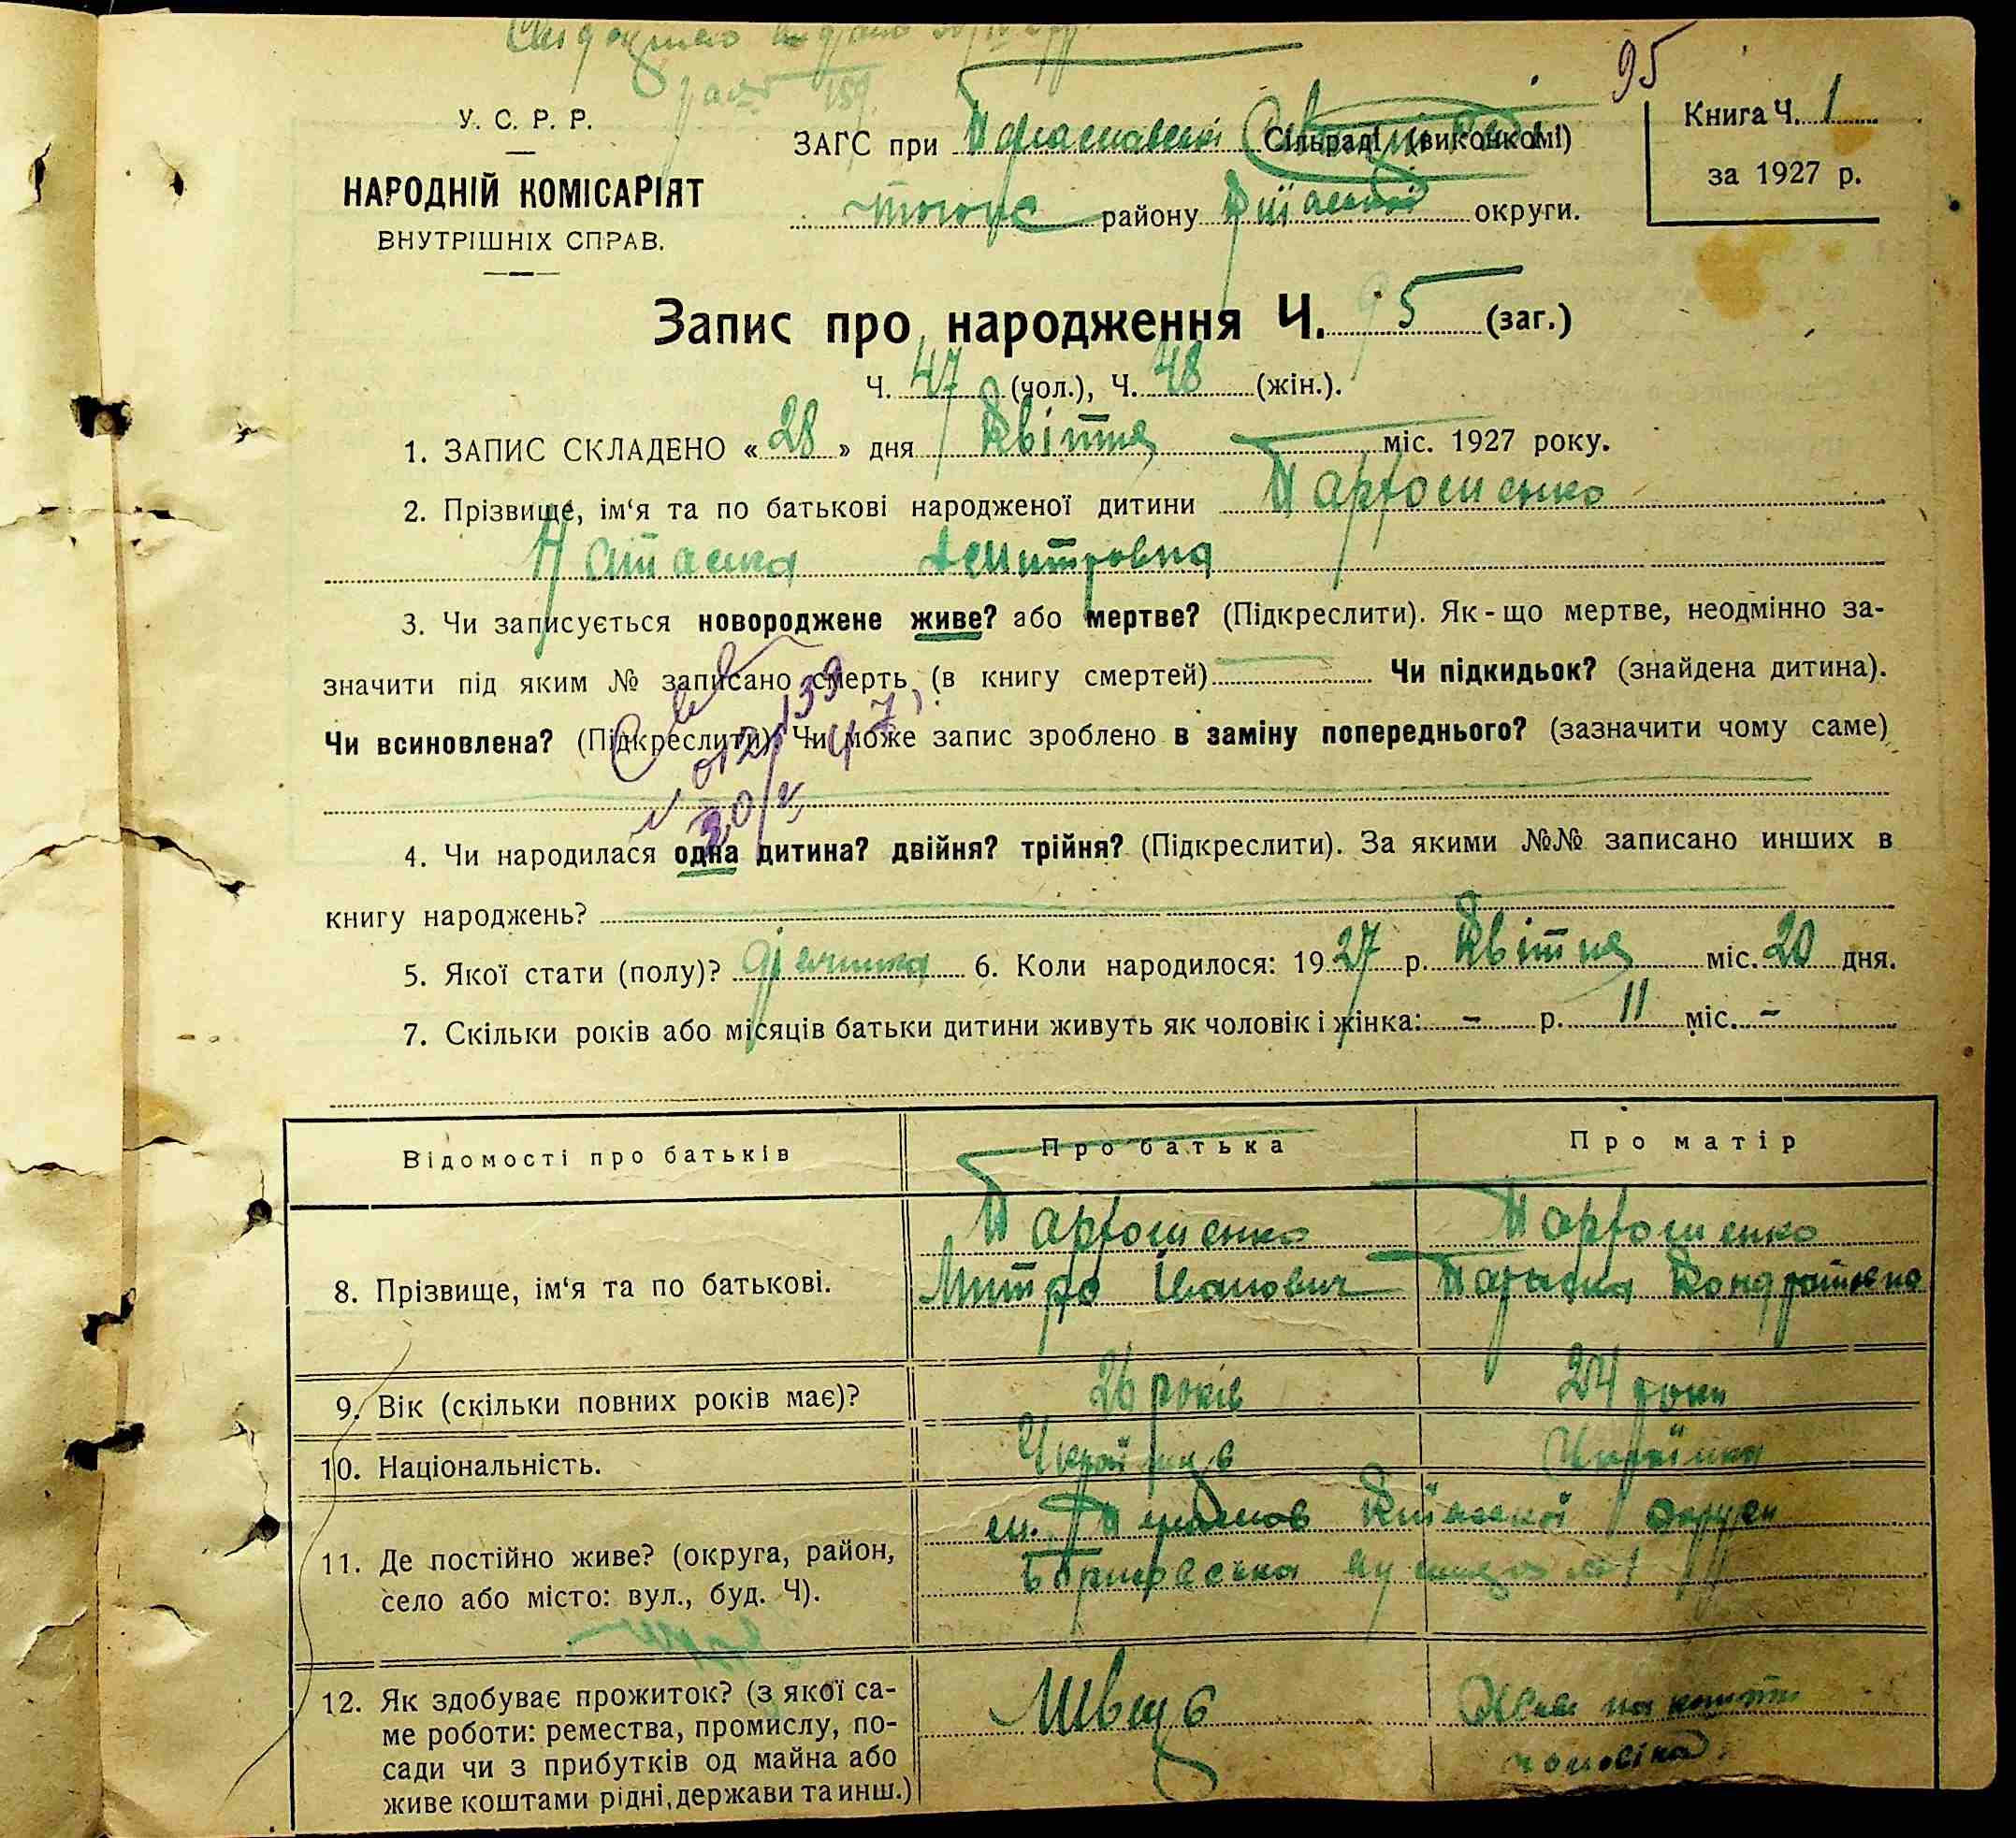 95
У. С. Р. Р.
НАРОДНІЙ КОМІСАРІЯТ
ВНУТРІШНІХ СПРАВ.
ЗАГС при Сільраді (виконкомі)
району округи.
Книга Ч. 1
за 1927 р.
Запис про народження Ч. 95 (заг.)
Ч. 47 (чол.), Ч. 48 (жін.).
1. ЗАПИС СКЛАДЕНО « 28 » дня Квітня міс. 1927 року.
2. Прізвище, ім‘я та по батькові народженої дитини Пархоменко
Наташка Дмитровна
3. Чи записується новороджене живе? або мертве? (Підкреслити). Як-що мертве, неодмінно за-
значити під яким № записано смерть (в книгу смертей) Чи підкидьок? (знайдена дитина).
Чи всиновлена? (Підкреслити) Чи може запис зроблено в заміну попереднього? (зазначити чому саме)
4. Чи народилася одна дитина? двійня? трійня? (Підкреслити). За якими №№ записано инших в
книгу народжень?
5. Якої стати (полу)? дівчинка 6. Коли народилося: 1927 р. Квітня міс. 20 дня.
7. Скільки років або місяців батьки дитини живуть як чоловік і жінка: – р. 11 міс. –
Відомості про батьків
Про батька
Про матір
8. Прізвище, ім‘я та по батькові.
Пархоменко
Митро Іванович
Пархоменко
Кондратовна
9. Вік (скільки повних років має)?
26 років
24 роки
10. Національність.
Українець
Українка
11. Де постійно живе? (округа, район,
село або місто: вул., буд. Ч).
м. Київської округи
12. Як здобуває прожиток? (з якої са-
ме роботи: ремества, промислу, по-
сади чи з прибутків од майна або
живе коштами рідні, держави та инш.)
Швець
Живе на кошти
чоловіка